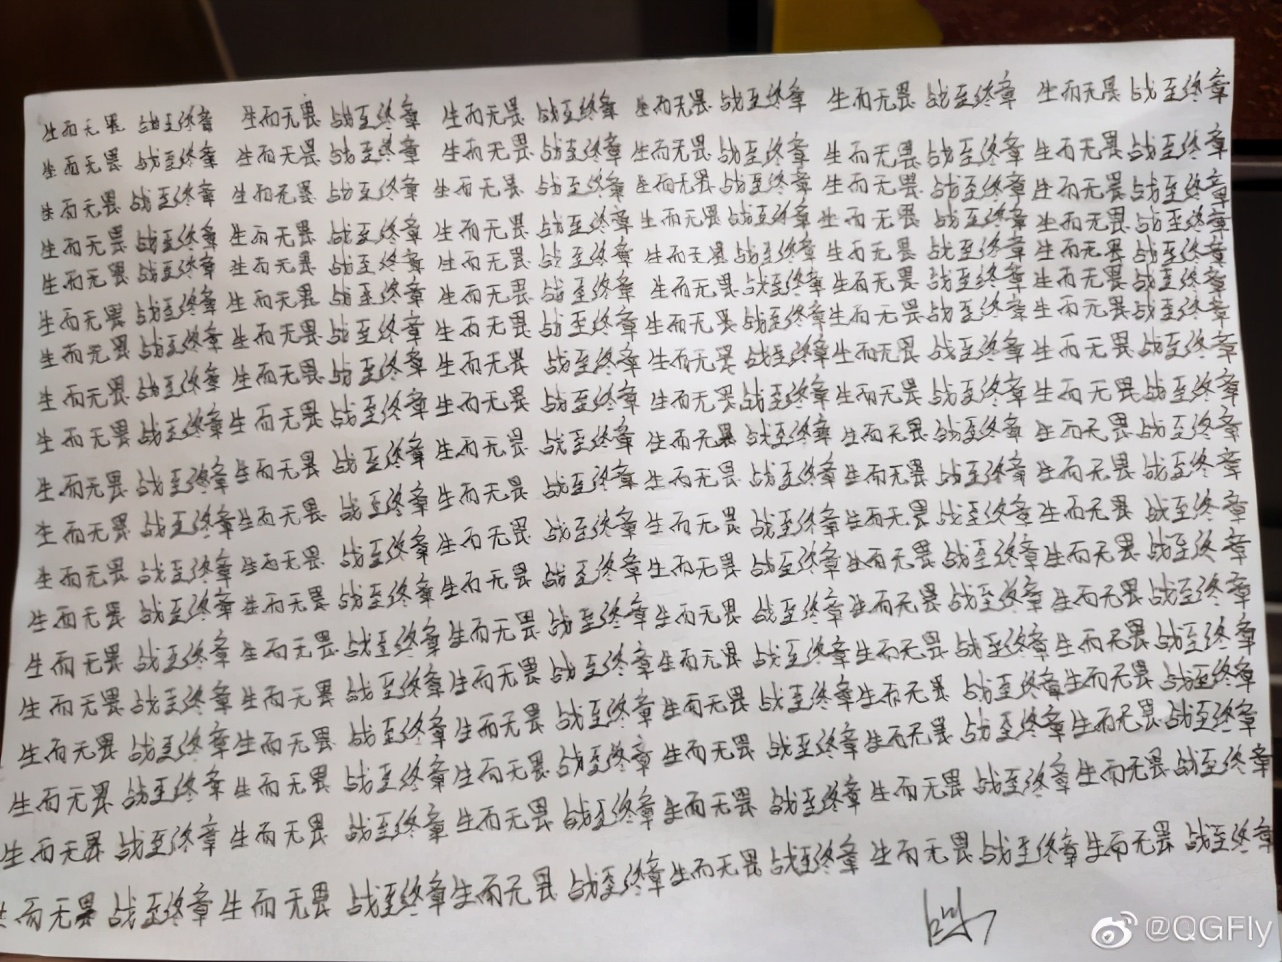 生而无畏 战至终章 生而无畏 战至终章 生而无畏 战至终章 生而无畏 战至终章 生而无畏 战至终章 生而无畏 战至终章
生而无畏 战至终章 生而无畏 战至终章 生而无畏 战至终章 生而无畏 战至终章 生而无畏 战至终章 生而无畏 战至终章
生而无畏 战至终章 生而无畏 战至终章 生而无畏 战至终章 生而无畏 战至终章 生而无畏 战至终章 生而无畏 战至终章
生而无畏 战至终章 生而无畏 战至终章 生而无畏 战至终章 生而无畏 战至终章 生而无畏 战至终章 生而无畏 战至终章
生而无畏 战至终章 生而无畏 战至终章 生而无畏 战至终章 生而无畏 战至终章 生而无畏 战至终章 生而无畏 战至终章
生而无畏 战至终章 生而无畏 战至终章 生而无畏 战至终章 生而无畏 战至终章 生而无畏 战至终章 生而无畏 战至终章
生而无畏 战至终章 生而无畏 战至终章 生而无畏 战至终章 生而无畏 战至终章 生而无畏 战至终章 生而无畏 战至终章
生而无畏 战至终章 生而无畏 战至终章 生而无畏 战至终章 生而无畏 战至终章 生而无畏 战至终章 生而无畏 战至终章
生而无畏 战至终章 生而无畏 战至终章 生而无畏 战至终章 生而无畏 战至终章 生而无畏 战至终章 生而无畏 战至终章
生而无畏 战至终章 生而无畏 战至终章 生而无畏 战至终章 生而无畏 战至终章 生而无畏 战至终章 生而无畏 战至终章
生而无畏 战至终章 生而无畏 战至终章 生而无畏 战至终章 生而无畏 战至终章 生而无畏 战至终章 生而无畏 战至终章
生而无畏 战至终章 生而无畏 战至终章 生而无畏 战至终章 生而无畏 战至终章 生而无畏 战至终章 生而无畏 战至终章
生而无畏 战至终章 生而无畏 战至终章 生而无畏 战至终章 生而无畏 战至终章 生而无畏 战至终章 生而无畏 战至终章
生而无畏 战至终章 生而无畏 战至终章 生而无畏 战至终章 生而无畏 战至终章 生而无畏 战至终章 生而无畏 战至终章
生而无畏 战至终章 生而无畏 战至终章 生而无畏 战至终章 生而无畏 战至终章 生而无畏 战至终章 生而无畏 战至终章
生而无畏 战至终章 生而无畏 战至终章 生而无畏 战至终章 生而无畏 战至终章 生而无畏 战至终章 生而无畏 战至终章
生而无畏 战至终章 生而无畏 战至终章 生而无畏 战至终章 生而无畏 战至终章 生而无畏 战至终章 生而无畏 战至终章
生而无畏 战至终章 生而无畏 战至终章 生而无畏 战至终章 生而无畏 战至终章 生而无畏 战至终章 生而无畏 战至终章
生而无畏 战至终章 生而无畏 战至终章 生而无畏 战至终章 生而无畏 战至终章 生而无畏 战至终章 生而无畏 战至终章
@QGFly